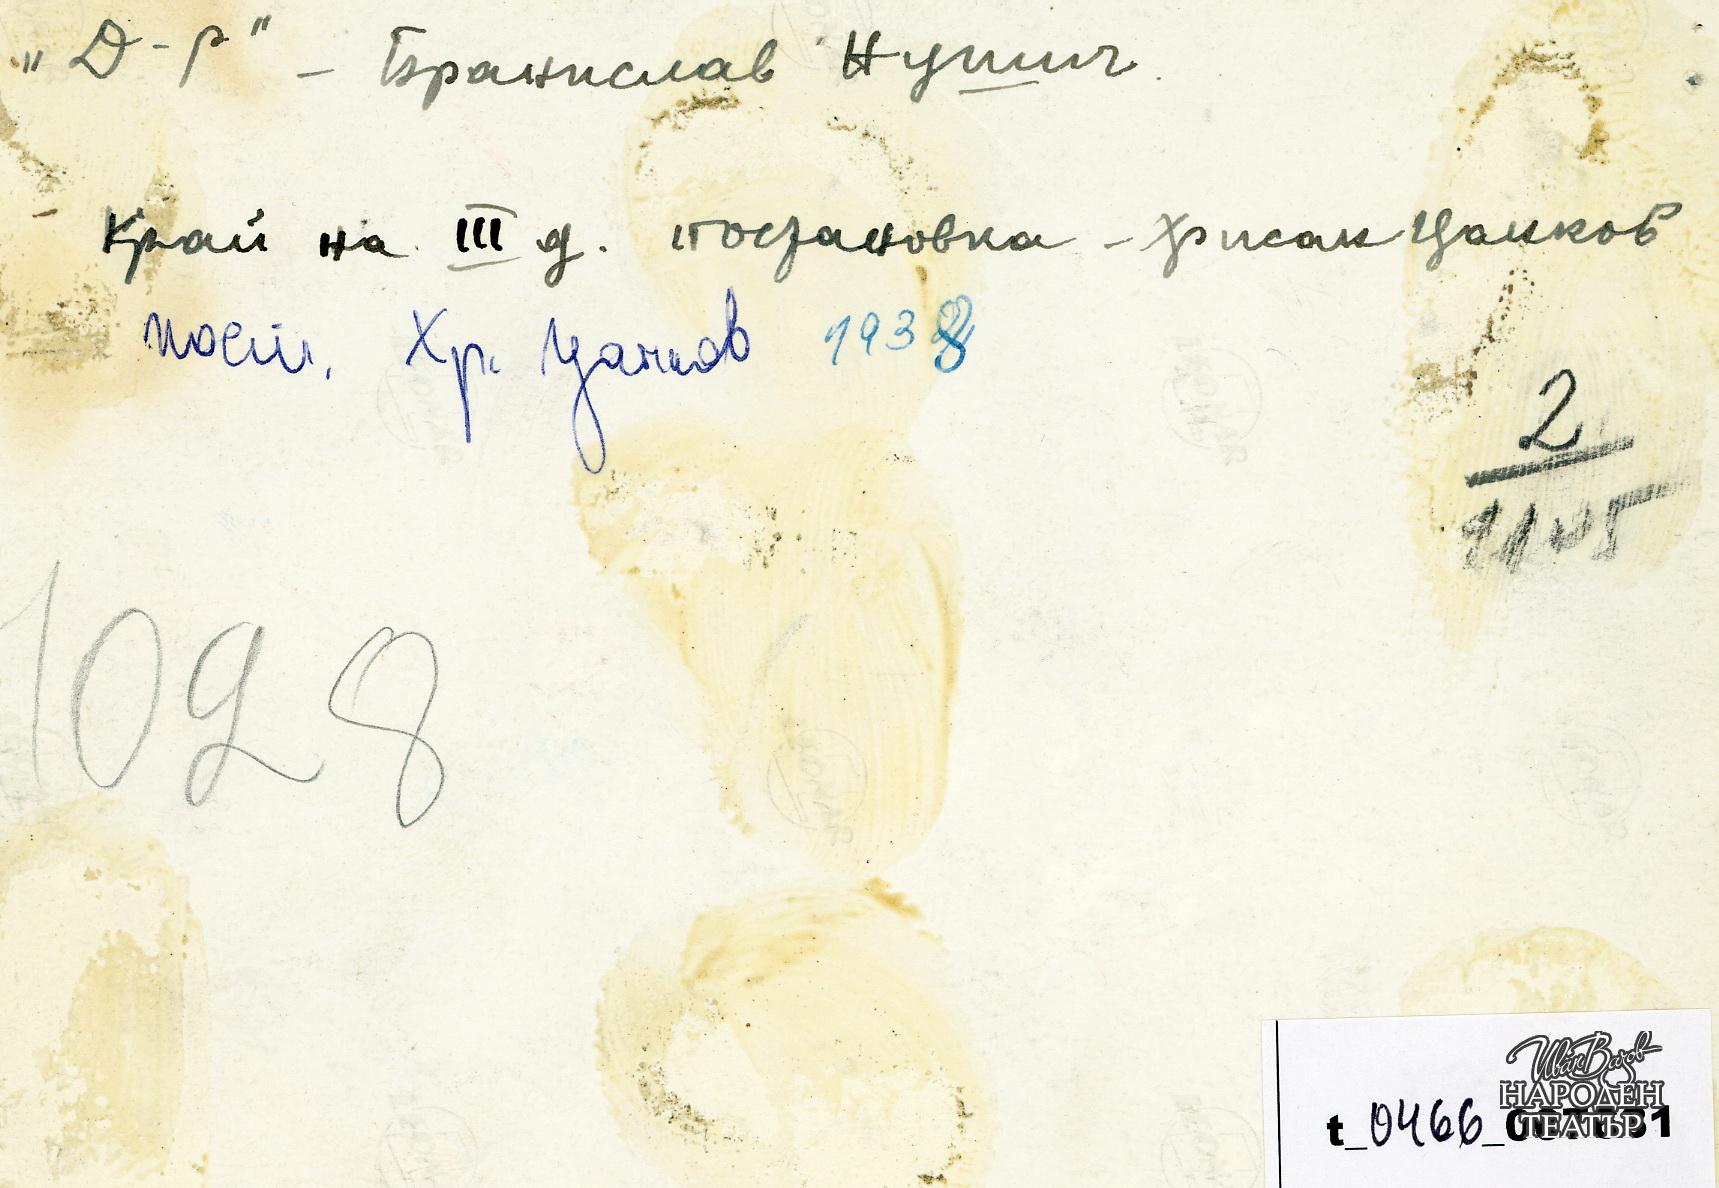 „Д-р" – Бранислав Нушич.
Край на III д. постановка – Хрисан Цанков
пост. Хр. Цанков 1938
2
1028
Иван Вазов
НАРОДЕН
ТЕАТЪР
t_0466_